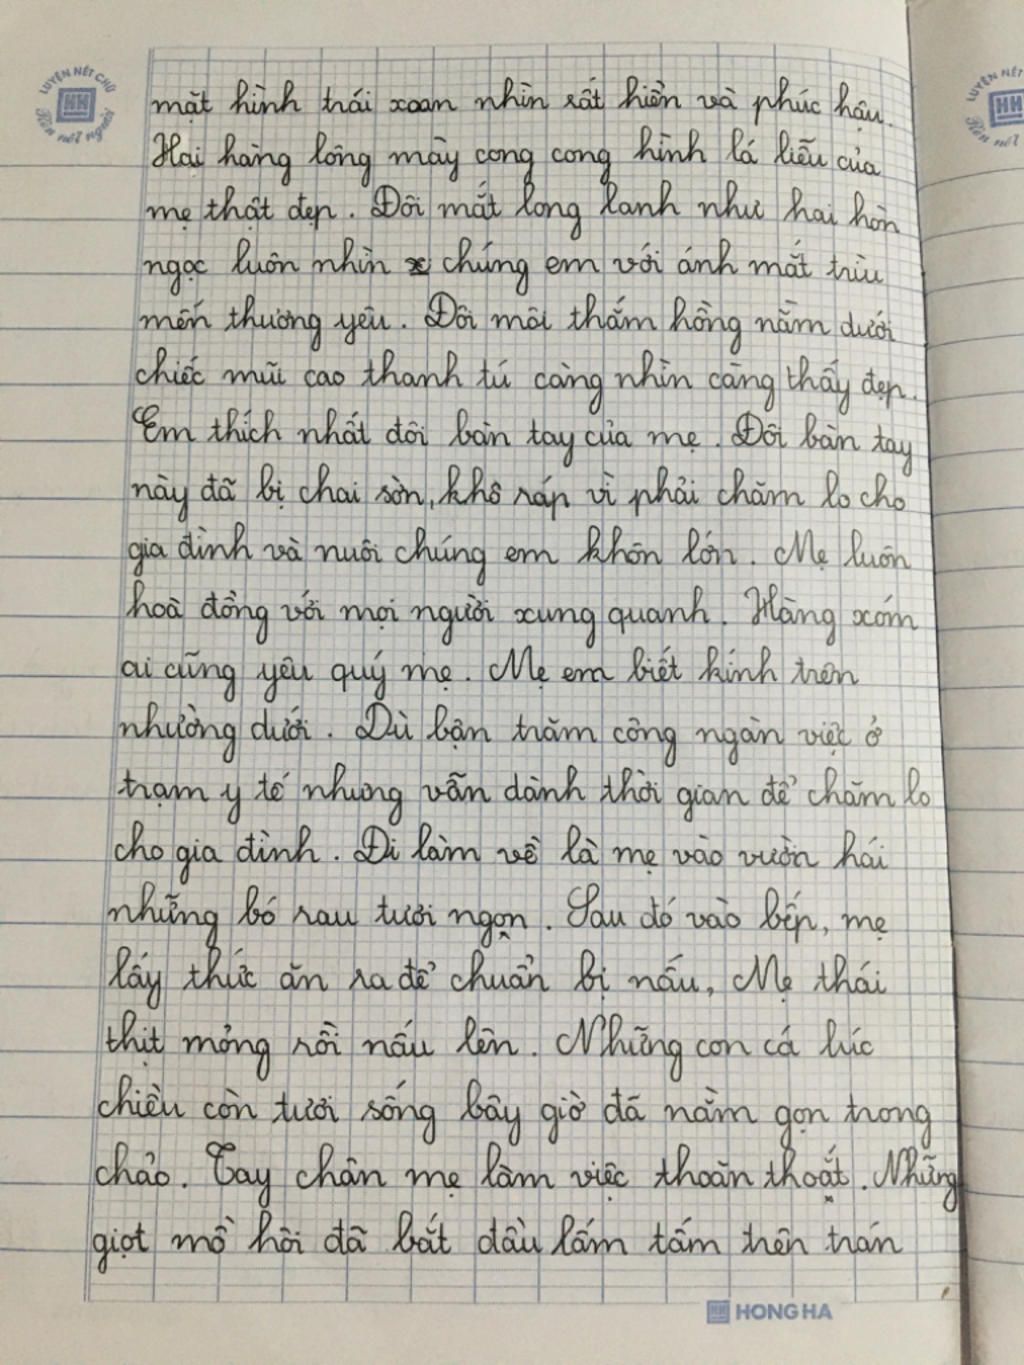 LUYỆN NẾT CHỮ
Rèn nết người
LUYỆN NẾT
Rèn nết
mặt hình trái xoan nhìn rất hiền và phúc hậu.
Hai hàng lông mày cong cong hình lá liễu của
mẹ thật đẹp. Đôi mắt long lanh như hai hòn
ngọc luôn nhìn x chúng em với ánh mắt trìu
mến thương yêu. Đôi môi thắm hồng nằm dưới
chiếc mũi cao thanh tú càng nhìn càng thấy đẹp.
Em thích nhất đôi bàn tay của mẹ. Đôi bàn tay
này đã bị chai sờn, khô ráp vì phải chăm lo cho
gia đình và nuôi chúng em khôn lớn. Mẹ luôn
hoà đồng với mọi người xung quanh. Hàng xóm
ai cũng yêu quý mẹ. Mẹ em biết kính trên
nhường dưới. Dù bận trăm công ngàn việc ở
trạm y tế nhưng vẫn dành thời gian để chăm lo
cho gia đình. Đi làm về là mẹ vào vườn hái
những bó rau tươi ngọn. Sau đó vào bếp, mẹ
lấy thức ăn ra để chuẩn bị nấu, Mẹ thái
thịt mỏng rồi nấu lên. Những con cá lúc
chiều còn tươi sống bây giờ đã nằm gọn trong
chảo. Tay chân mẹ làm việc thoăn thoắt. Những
giọt mồ hôi đã bắt đầu lấm tấm trên trán
HH HONG HA